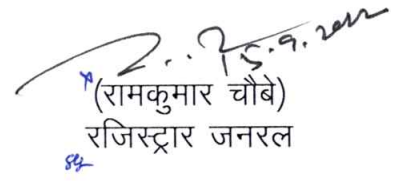 15.9.2022
(रामकुमार चौबे)
रजिस्ट्रार जनरल